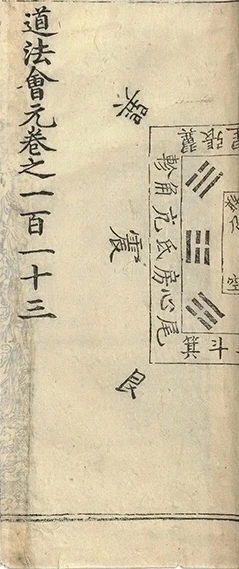 張翼
軫角亢氐房心尾
箕斗
巽
震
艮
道法會元卷之一百一十三